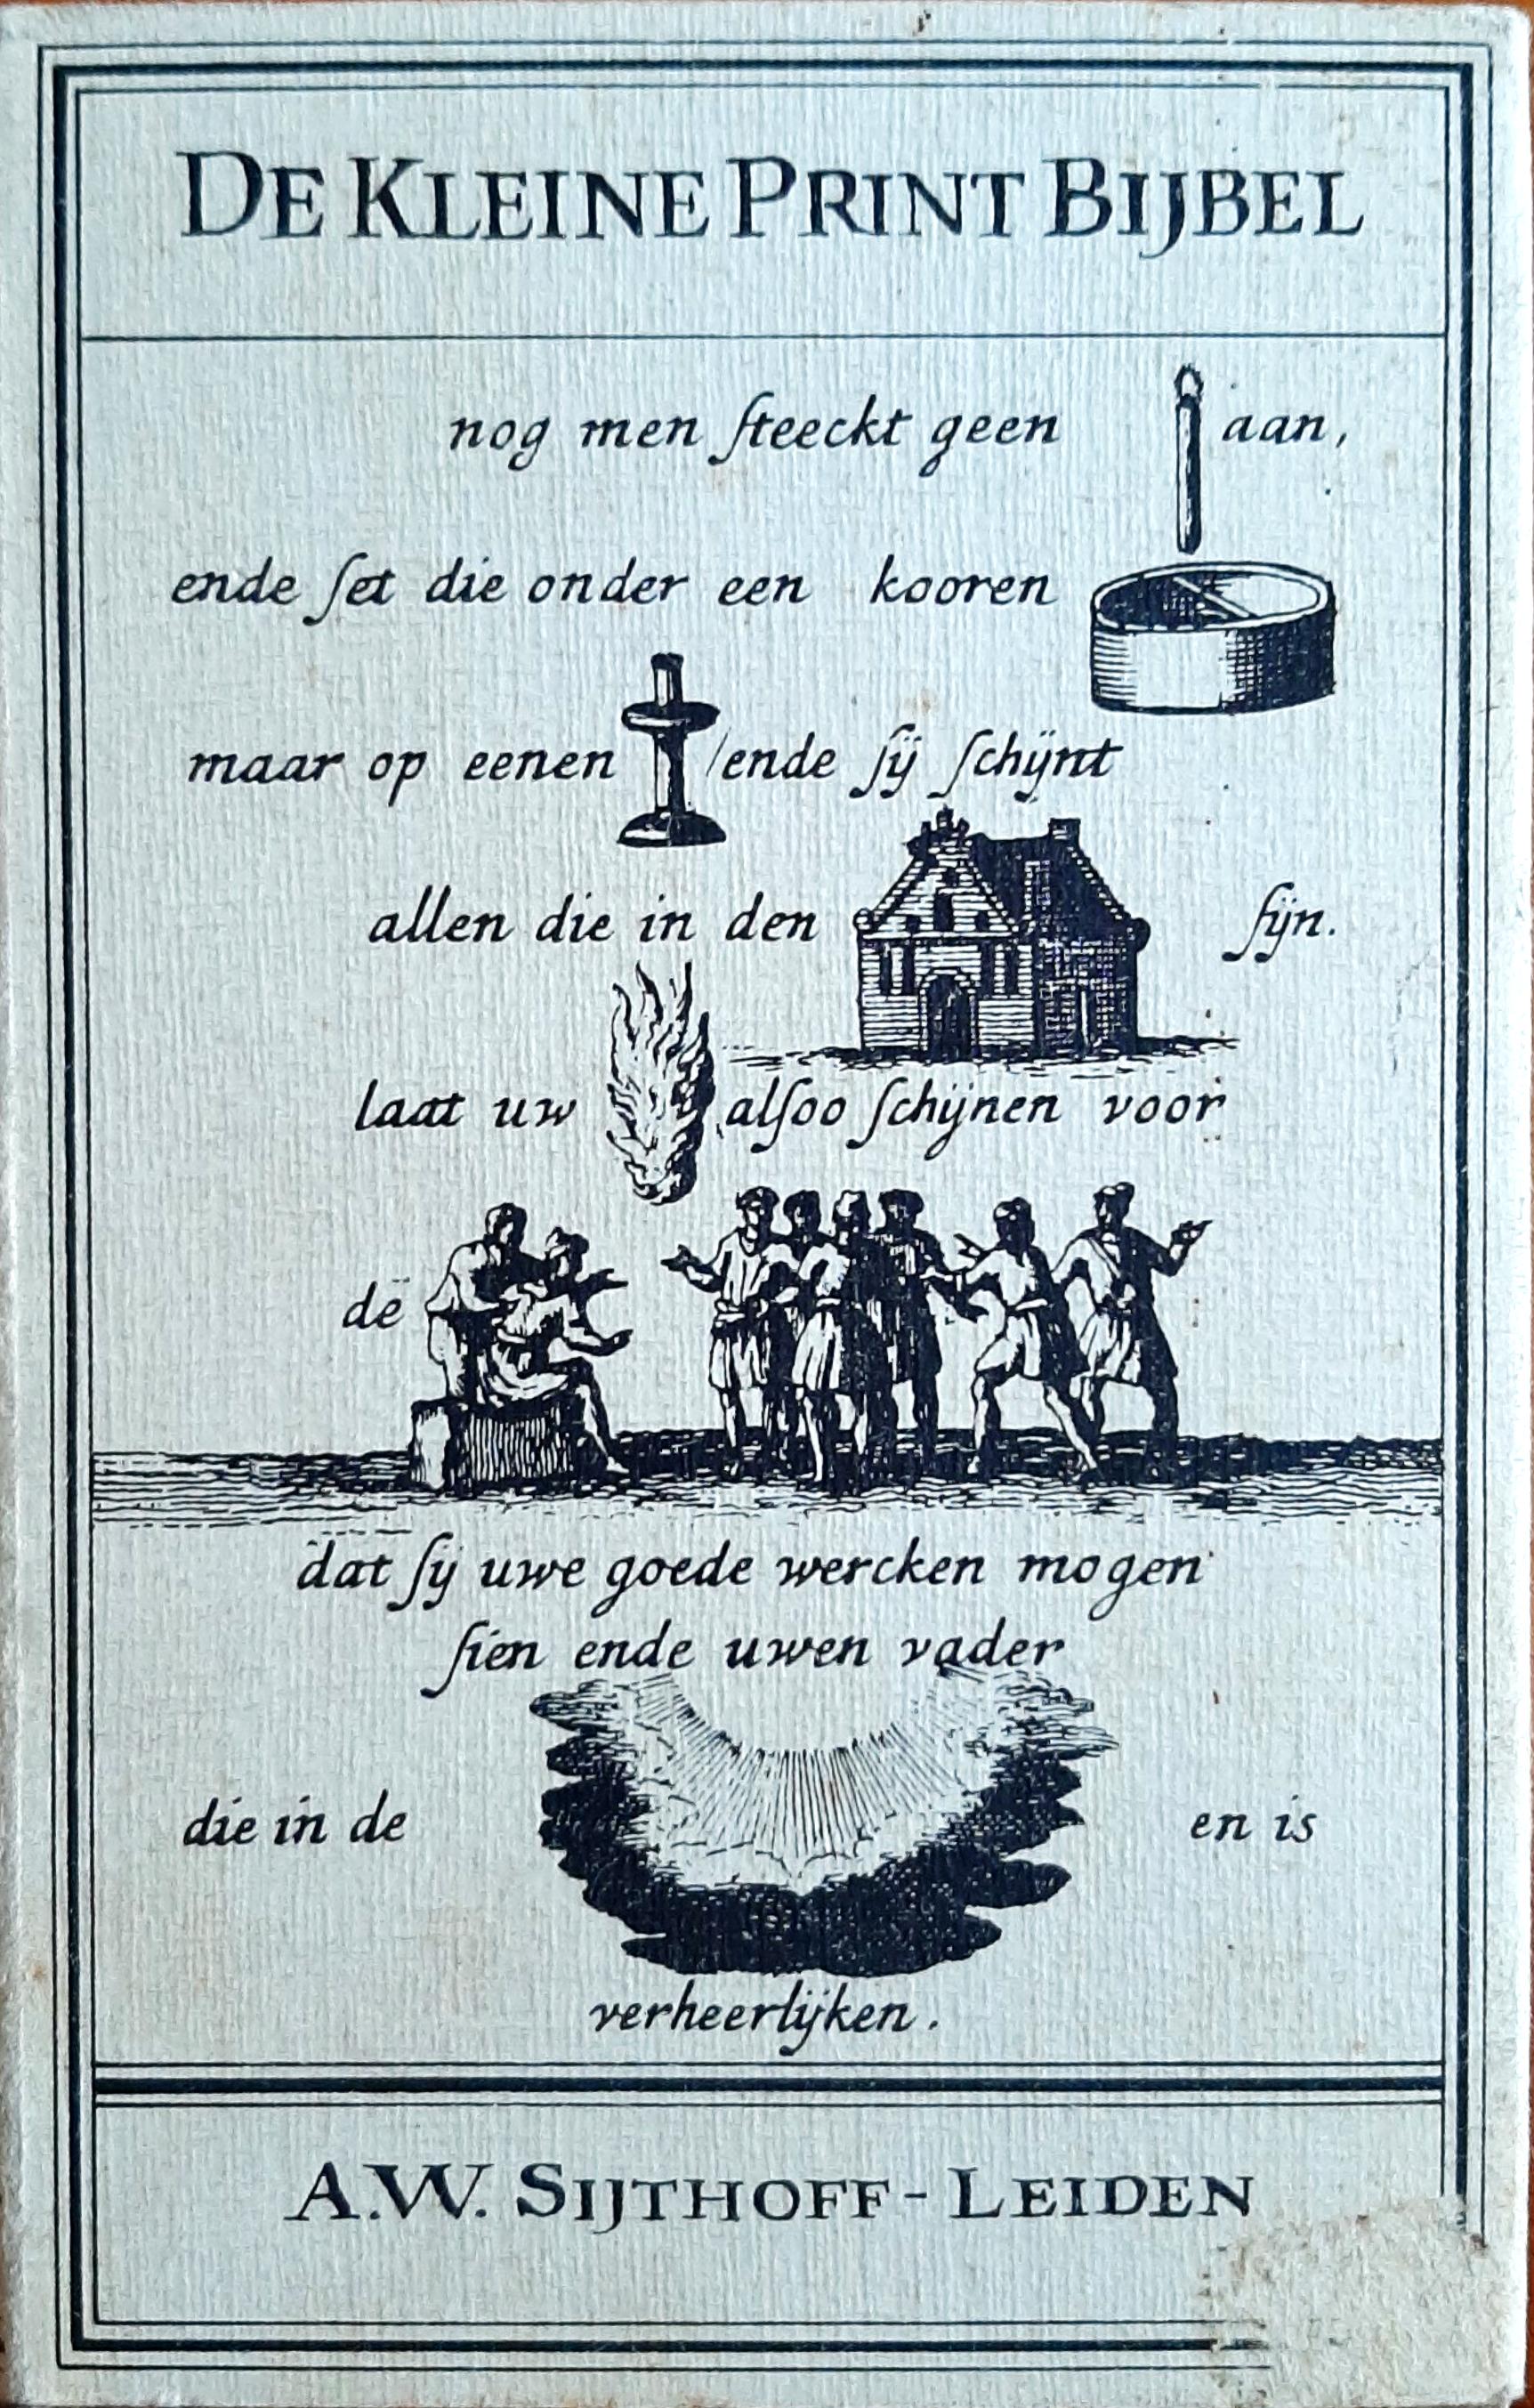 DE KLEINE PRINT BIJBEL
nog men ſteeckt geen aan,
ende ſet die onder een kooren
maar op eenen /ende ſij ſchijnt
allen die in den ſijn.
laat uw alſoo ſchijnen voor
de
dat ſij uwe goede wercken mogen
ſien ende uwen vader
die in de en is
verheerlijken.
A.W. SIJTHOFF - LEIDEN